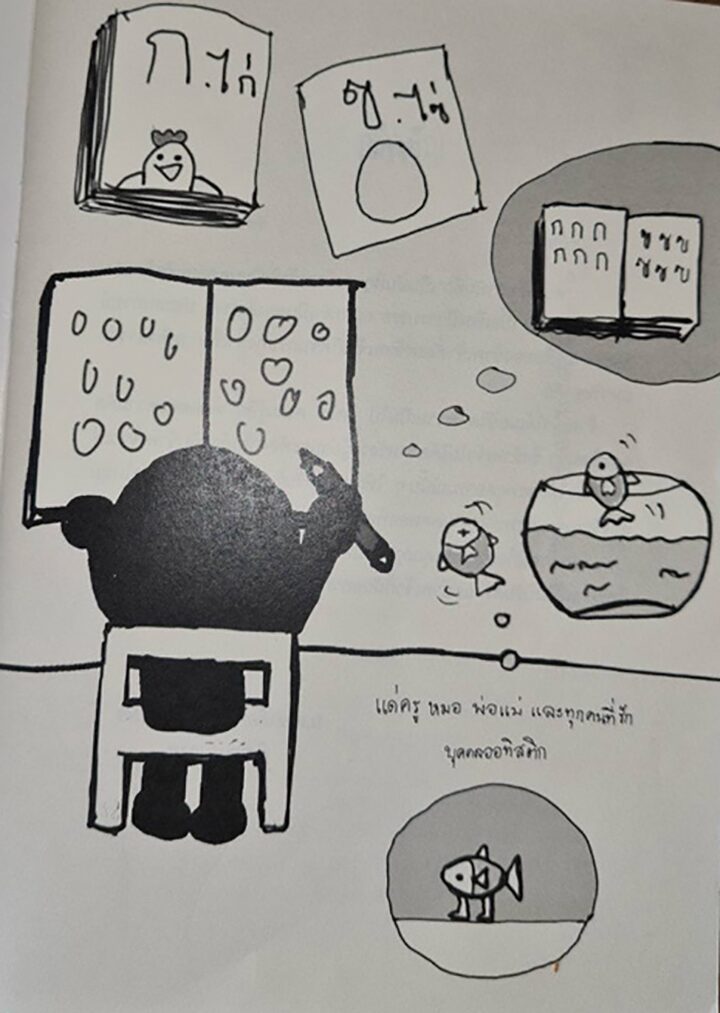 ก.ไก่
ข.ไข่
ก ก ก ข ข ข
ก ก ก ข ข ข
แด่ครู หมอ พ่อแม่ และทุกคนที่รัก
บุคคลออทิสติก